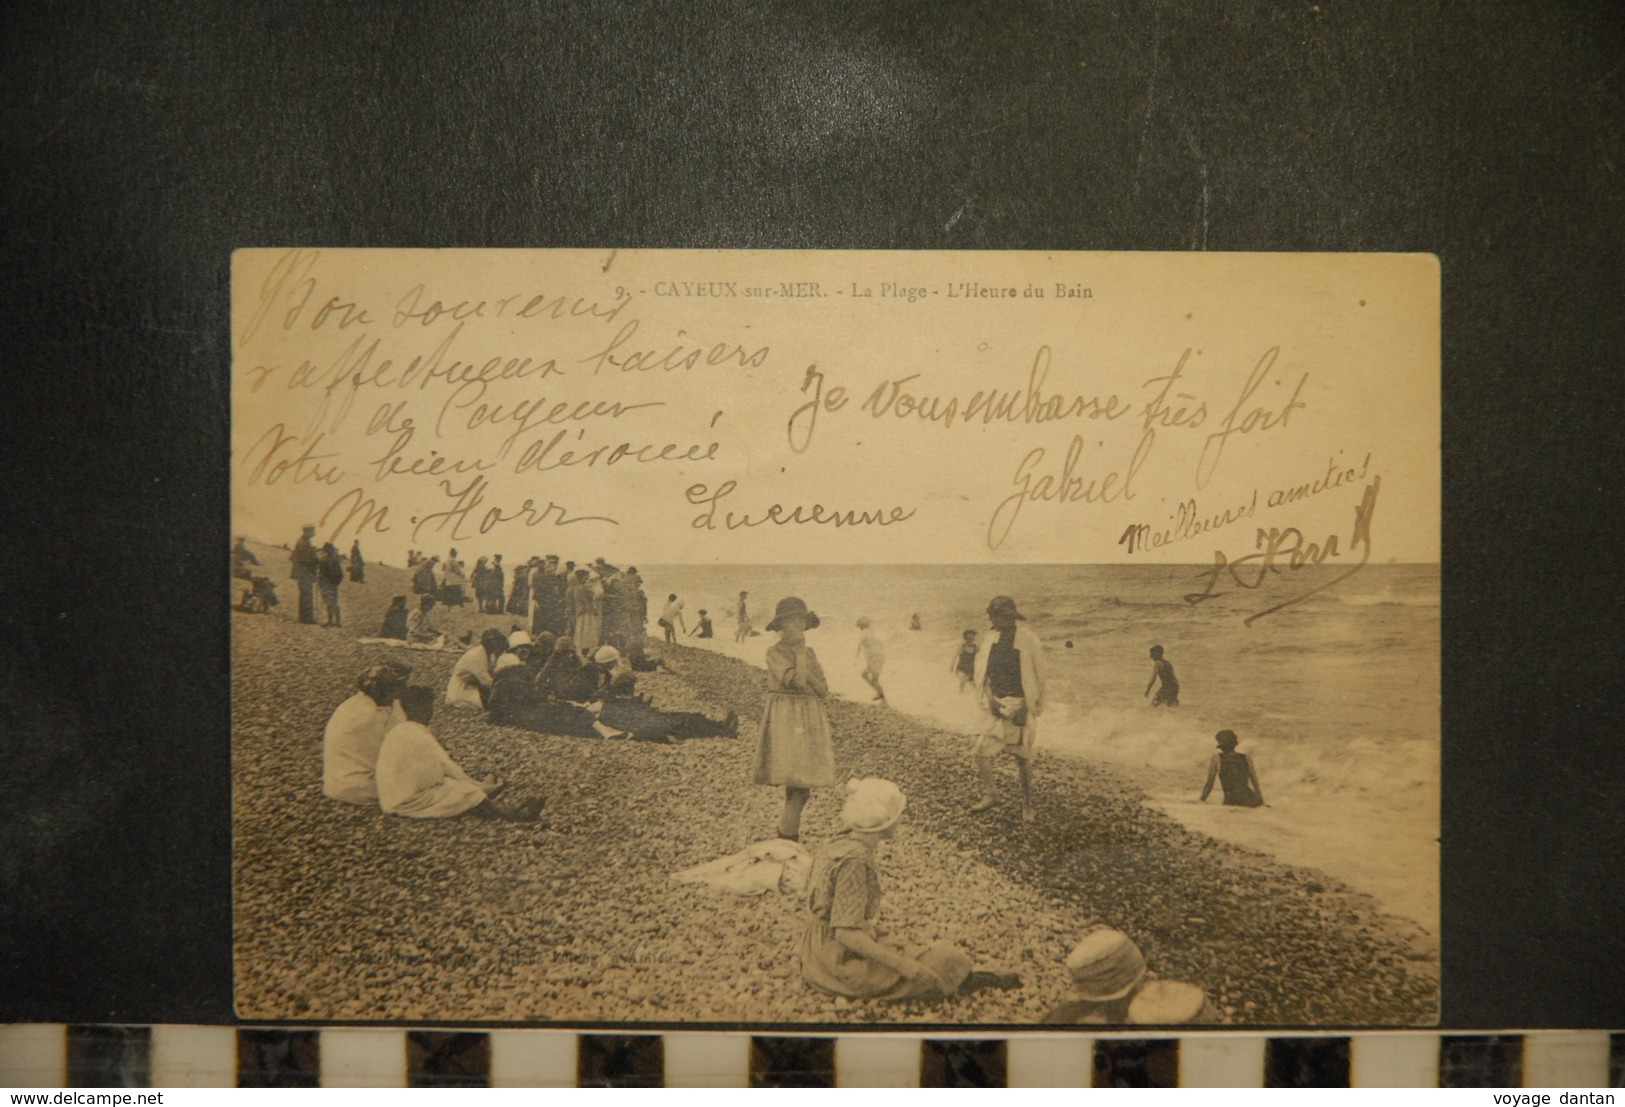 9. - CAYEUX-sur-MER. - La Plage - L'Heure du Bain
Bon souvenir
affectueux baisers
de Cayeux
Votre bien dévouée
M. Horr
Lucienne
Je vous embrasse très fort
Gabriel
Meilleures amitiés
L Horr
delcampe.net
voyage dantan